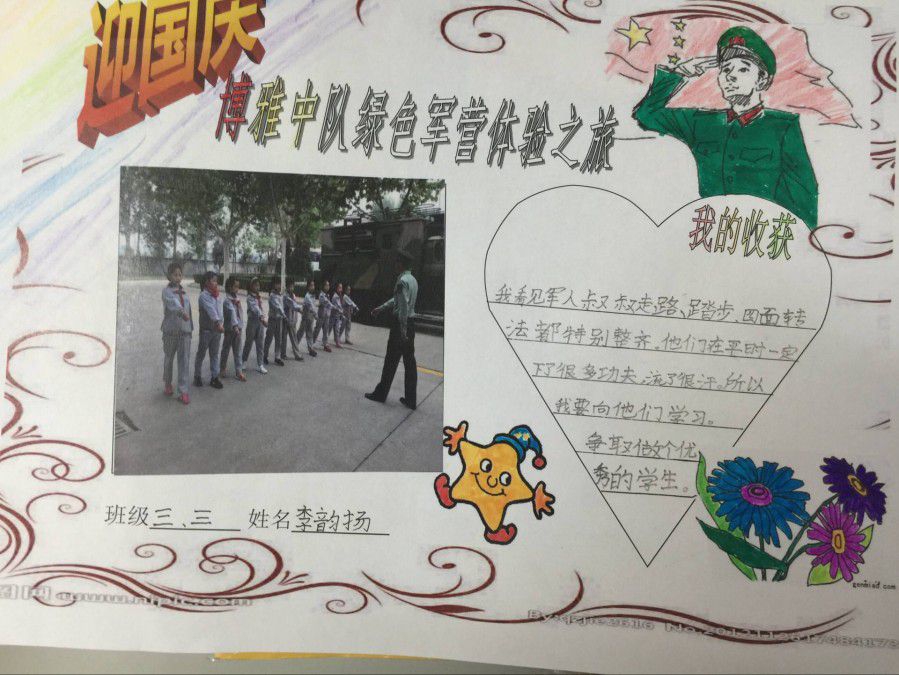 迎国庆
博雅中队绿色军营体验之旅
我的收获
我看见军人叔叔走路、踏步、四面转
法都特别整齐。他们在平时一定
下了很多功夫，流了很汗。所以
我要向他们学习。
争取做个优
秀的学生。
班级三、三 姓名李韵扬
www.nipic.com